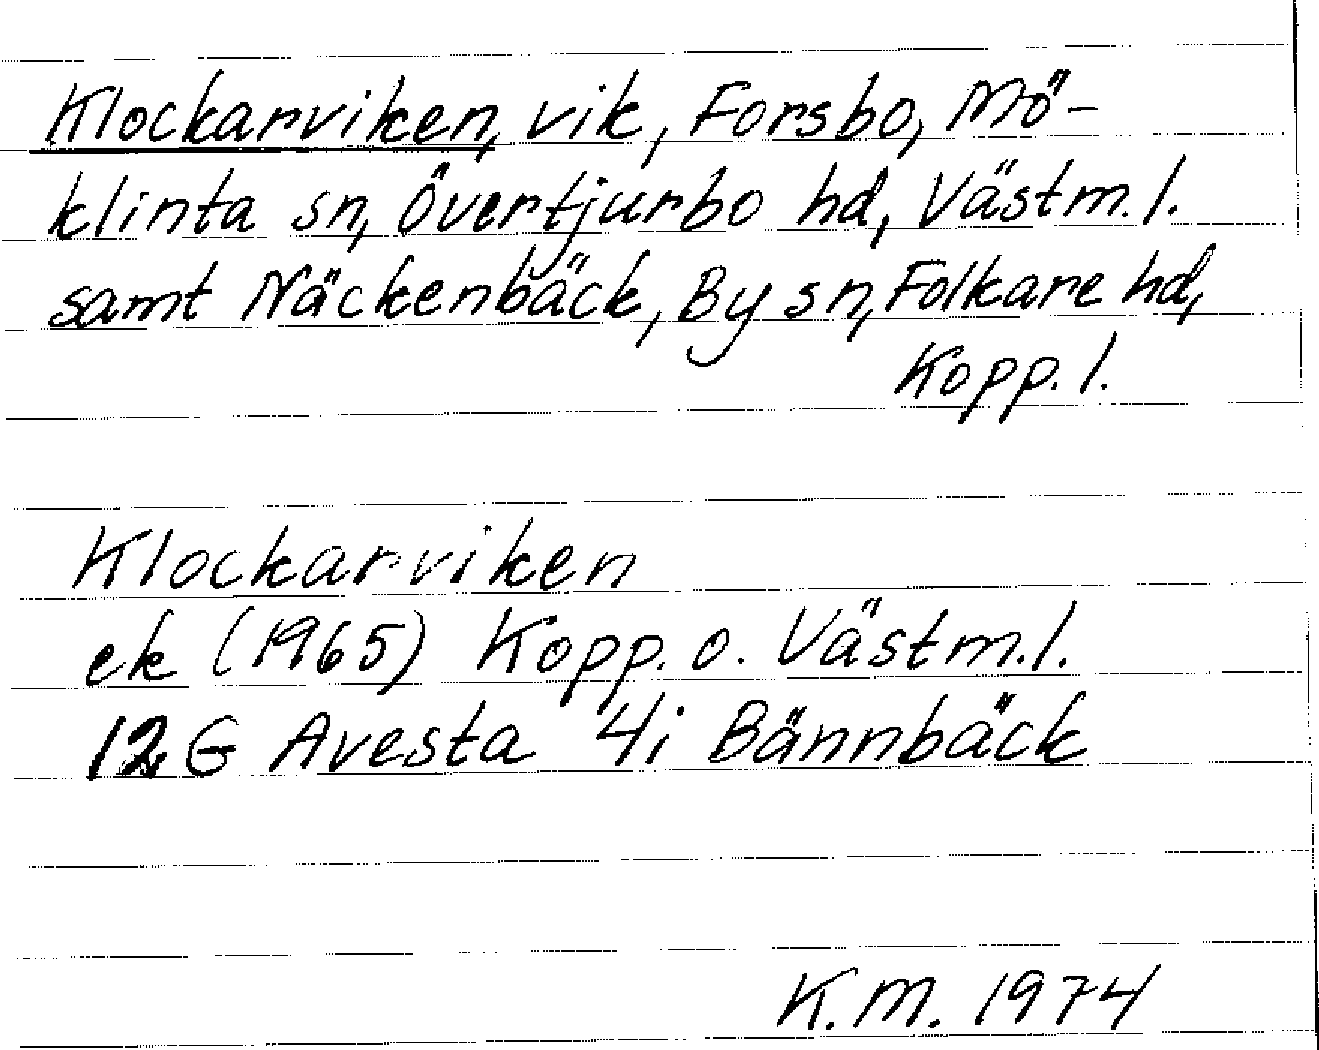 Klockarviken, vik, Forsbo, Mö-
klinta sn, Övertjurbo hd, Västm. l.
samt Näckenbäck, By sn, Folkare hd,
Kopp. l.
Klockarviken
ek (1965) Kopp. o. Västm. l.
12 G Avesta 4i Bännbäck
K.M. 1974